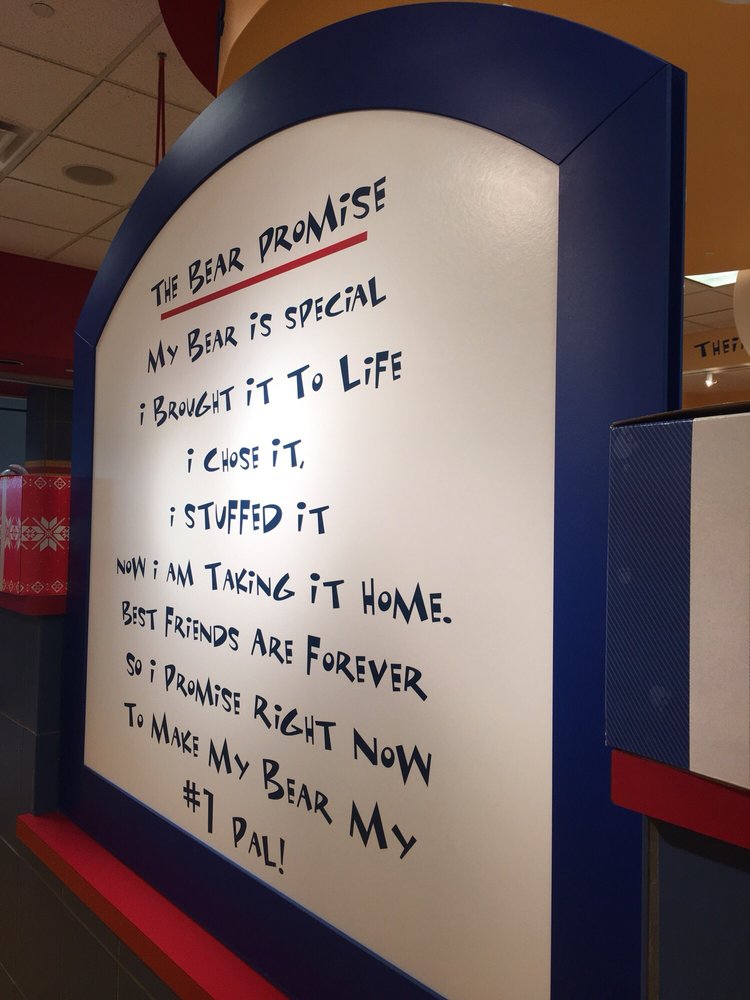 THE BEAR PROMiSE
MY BEAR iS SPECiAL
i BROUGHT iT TO LiFE
i CHOSE iT,
i STUFFED iT
NOW i AM TAKiNG iT HOME.
BEST FRiENDS ARE FOREVER
SO i PROMiSE RiGHT NOW
TO MAKE MY BEAR MY
#1 PAL!